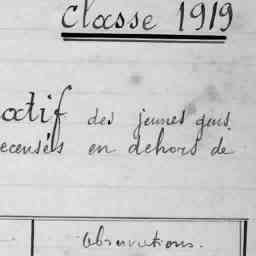 Classe 1919
atif des jeunes gens
ecensés en dehors de
Observations.